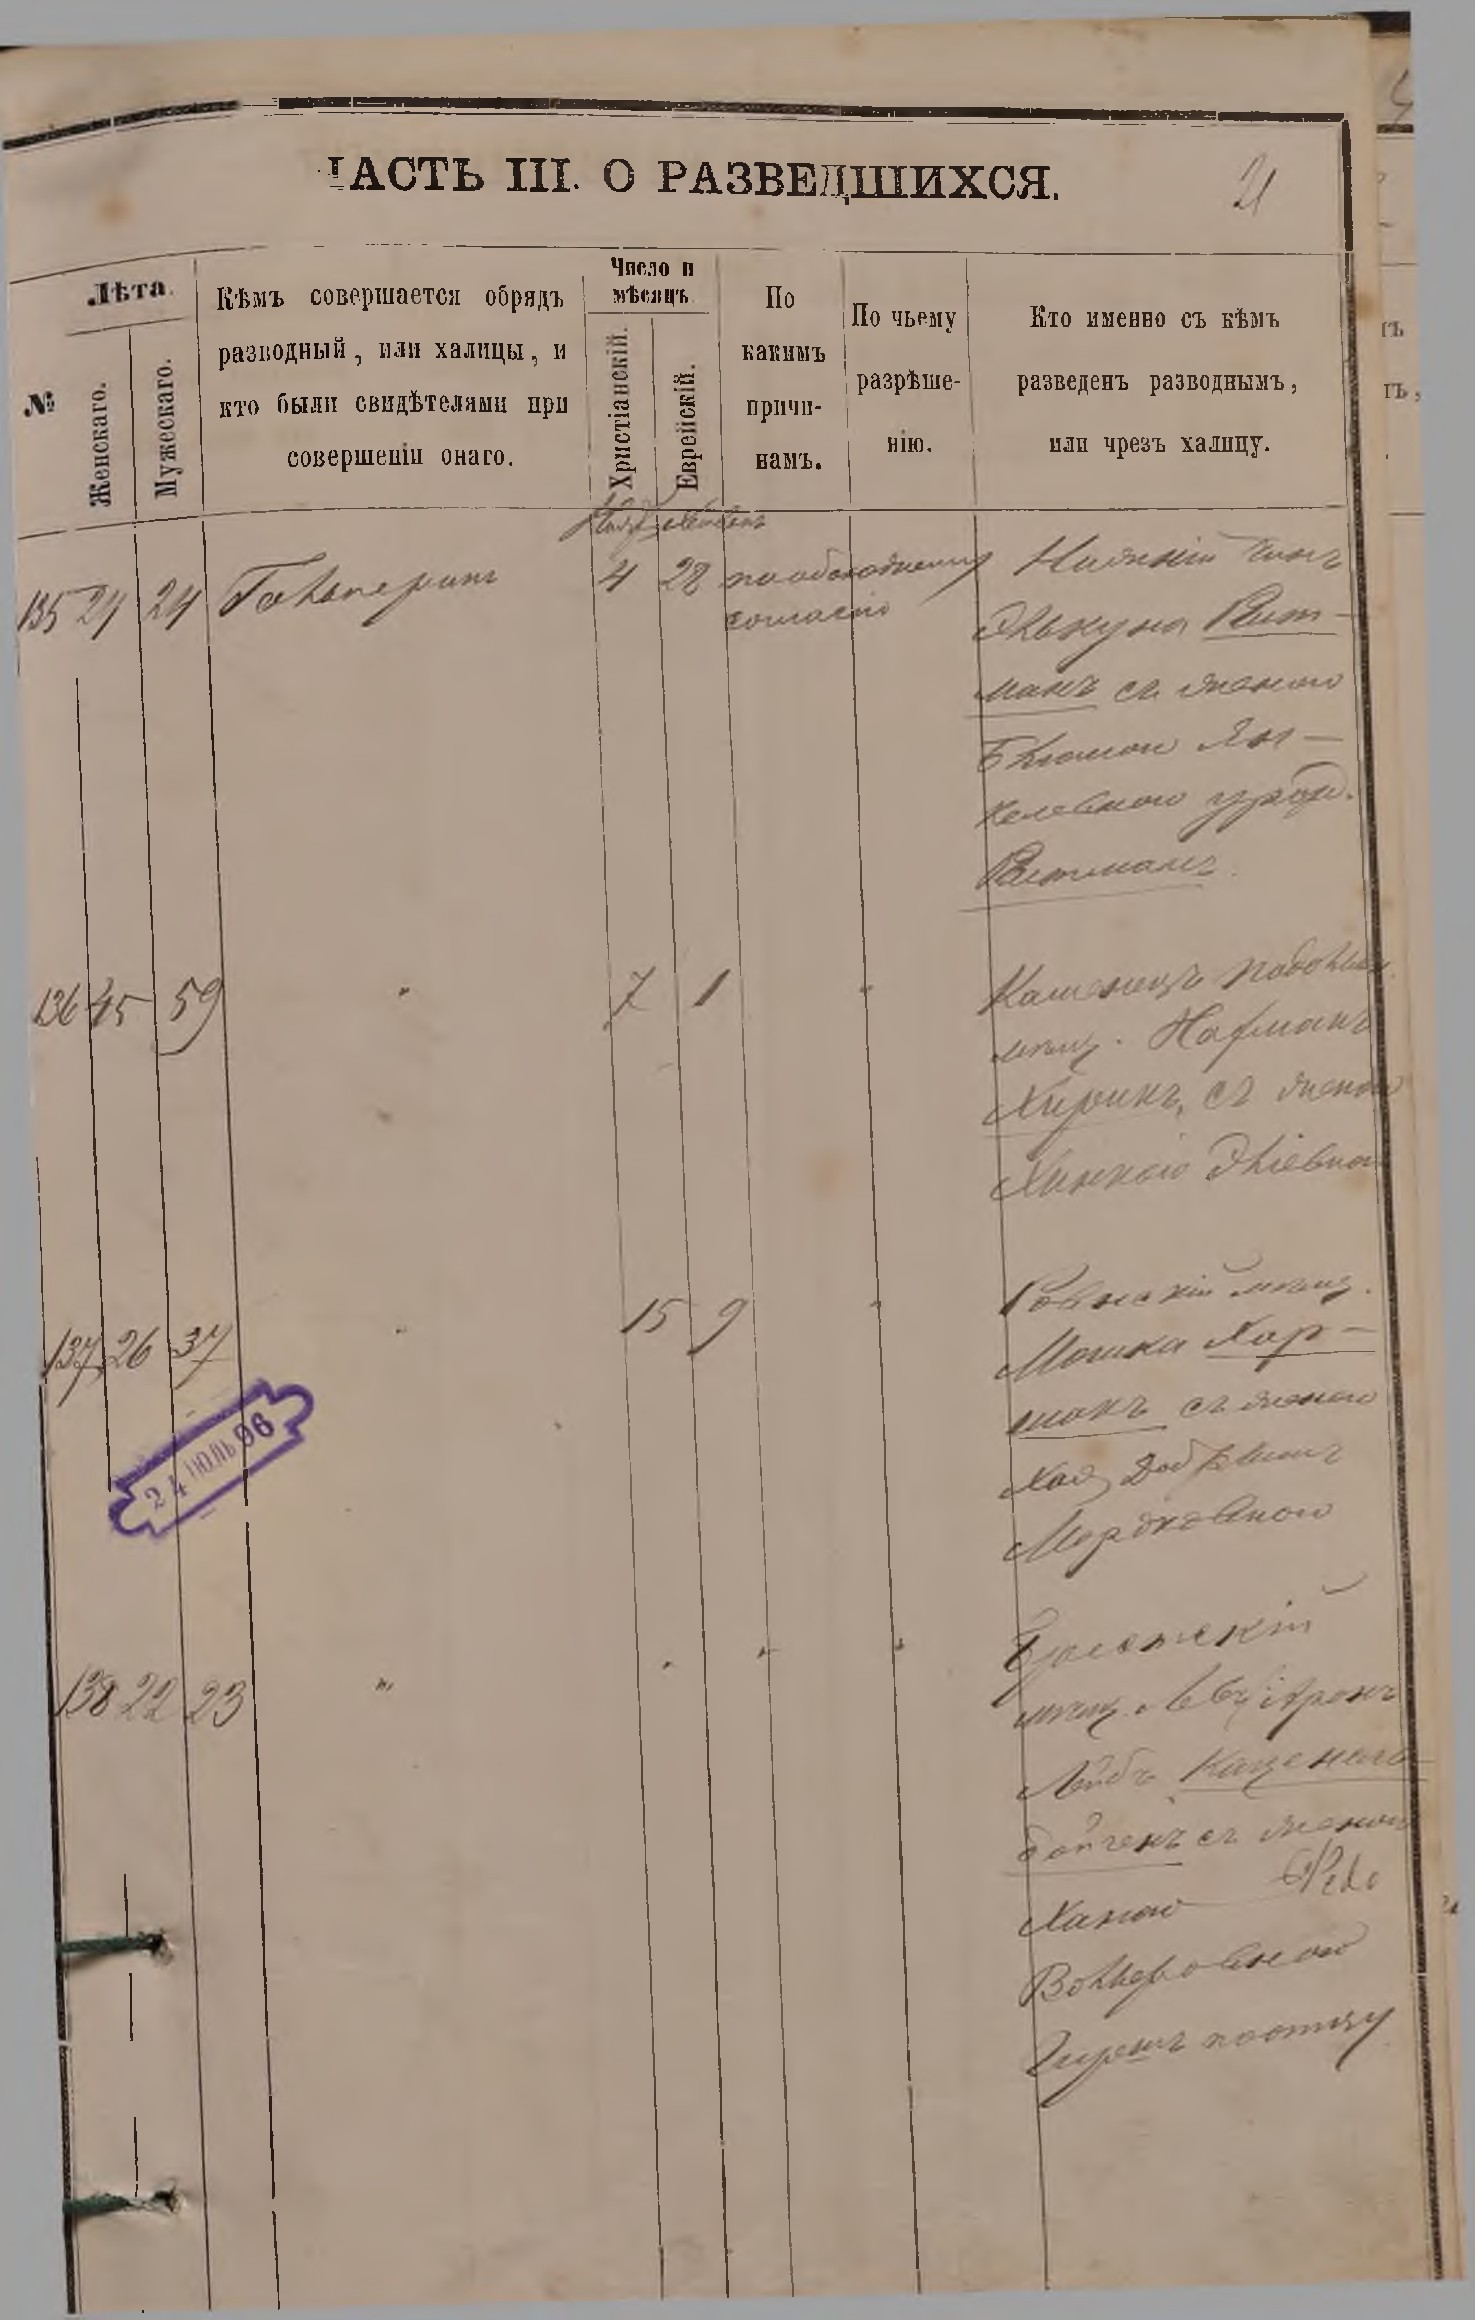 ЧАСТЬ III. О РАЗВЕДШИХСЯ.
21
№
Лѣта.
Женскаго.
Мужескаго.
Кѣмъ совершается обрядъ
разводный, или халицы, и
кто были свидѣтелями при
совершеніи онаго.
Число и
мѣсяцъ
Христіанскій.
Еврейскій.
По
какимъ
причи-
намъ.
По чьему
разрѣше-
нію.
Кто именно съ кѣмъ
разведенъ разводнымъ,
или чрезъ халицу.
135 24 24 Гальперинъ 4 28 по обоюдному
согласію
Нижній чинъ
Элькуна Вит-
манъ съ женою
Блюмою Ян-
келевною урожд.
136 45 59 " 7 1 "
Каменецъ Подольск.
мѣщ. Нахманъ
Хиринъ, съ женою
Хинкою Эліевною
137 26 37 " 15 9 "
Ровенскій мѣщ.
Мошка Хар-
манъ съ женою
Хая
Мордковною
24 ІЮЛЬ 96
138 22 23 " " " "
Брестскій
мѣщ. Аронъ
Лейбъ Каценель-
бойгенъ съ женою
Ханою
Вольфовною